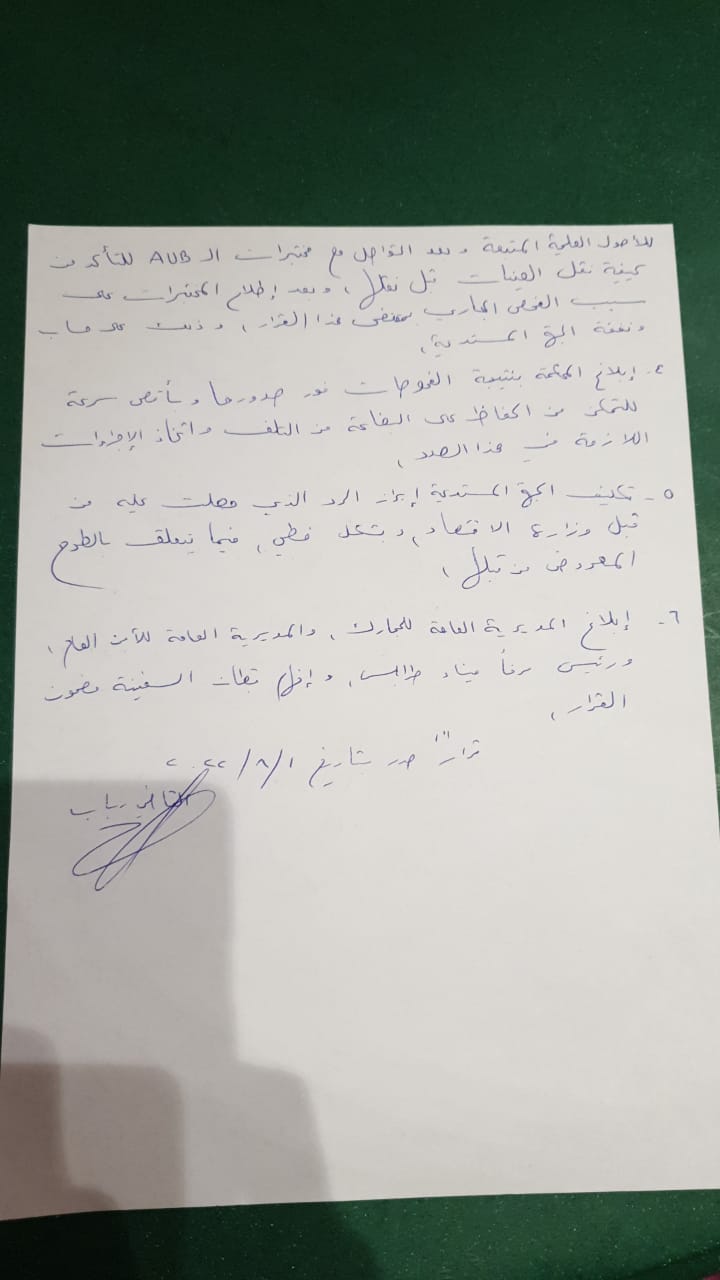 للأصول العلمية المتبعة وبعد التواصل مع مختبرات الـ AUB للتأكد من
كيفية نقل العينات قبل نقلها، وبعد إطلاع المختبرات على
سبب الفحص الجاري بمقتضى هذا القرار، وذلك على حساب
ونفقة الجهة المستدعية،
٤- إبلاغ المحكمة بنتيجة الفحوصات فور صدورها وبأقصى سرعة
للتمكن من الحفاظ على البضاعة من التلف واتخاذ الإجراءات
اللازمة في هذا الصدد،
٥- تكليف الجهة المستدعية إبراز الرد الذي حصلت عليه من
قبل وزارة الاقتصاد، وبشكل خطي، فيما يتعلق بالطرح
المعروض من قبلها،
٦- إبلاغ المديرية العامة للجمارك، والمديرية العامة للأمن العام،
ورئيس مرفأ ميناء طرابلس، و قبطان السفينة مضمون
القرار،
قراراً صدر بتاريخ ٢٠٢٢/٨/١
القاضي رباب